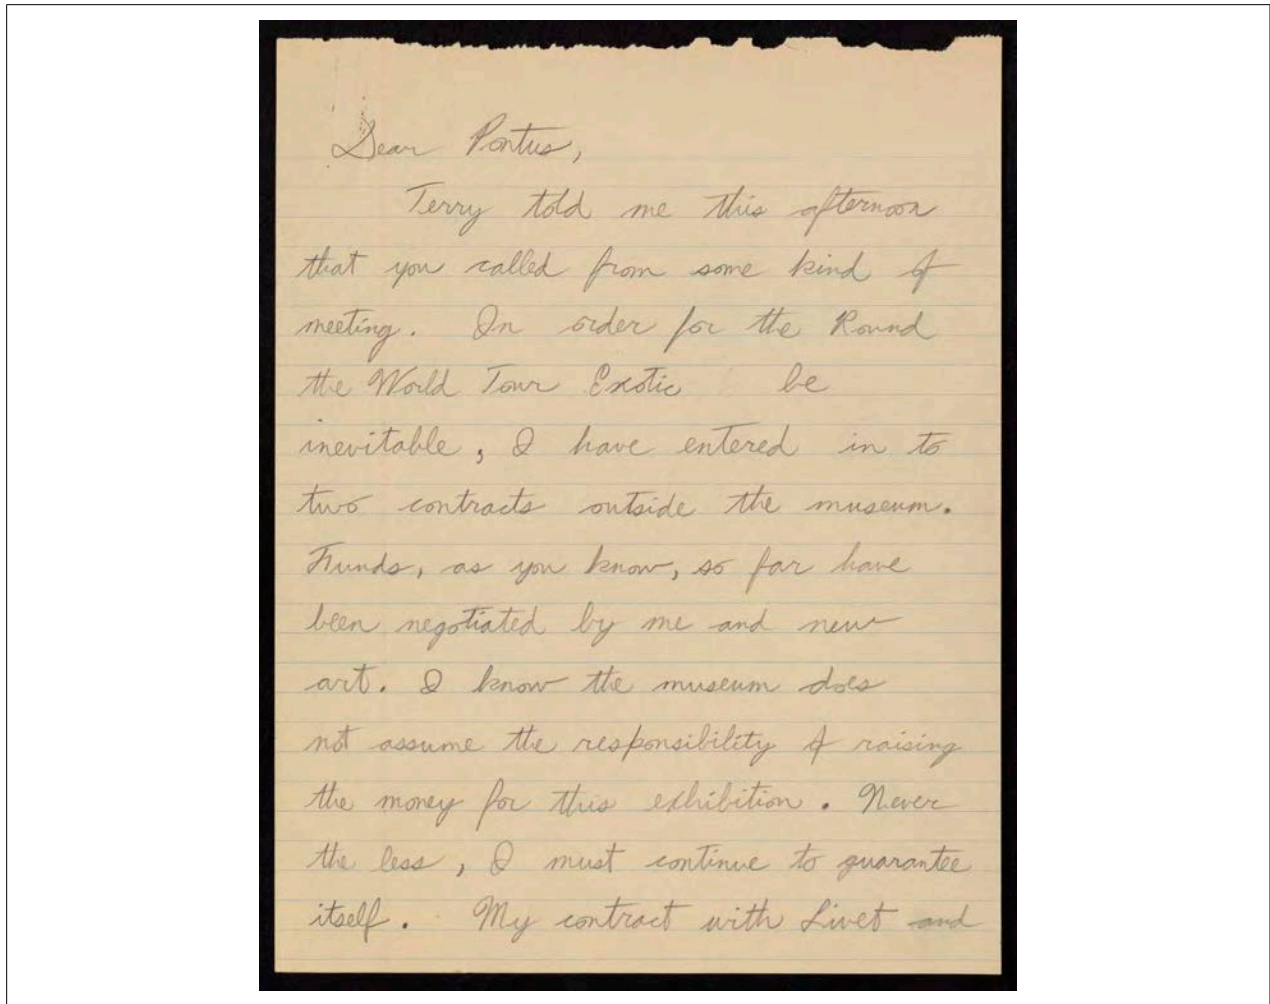 Dear Pontus,
Terry told me this afternoon
that you called from some kind of
meeting. In order for the Round
the World Tour Exotic be
inevitable, I have entered in to
two contracts outside the museum.
Funds, as you know, so far have
been negotiated by me and new
art. I know the museum does
not assume the responsibility of raising
the money for this exhibition. Never
the less, I must continue to guarantee
itself. My contract with Livet and